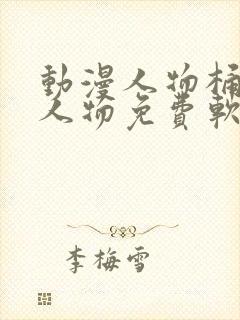 動漫人物桶
人物免費軟
李梅雪